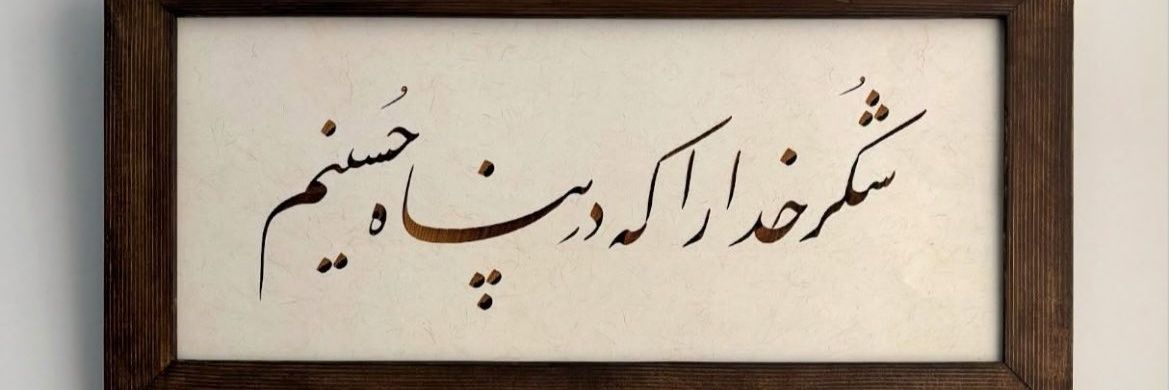 شُکر خدا را که در پناه حُسینم